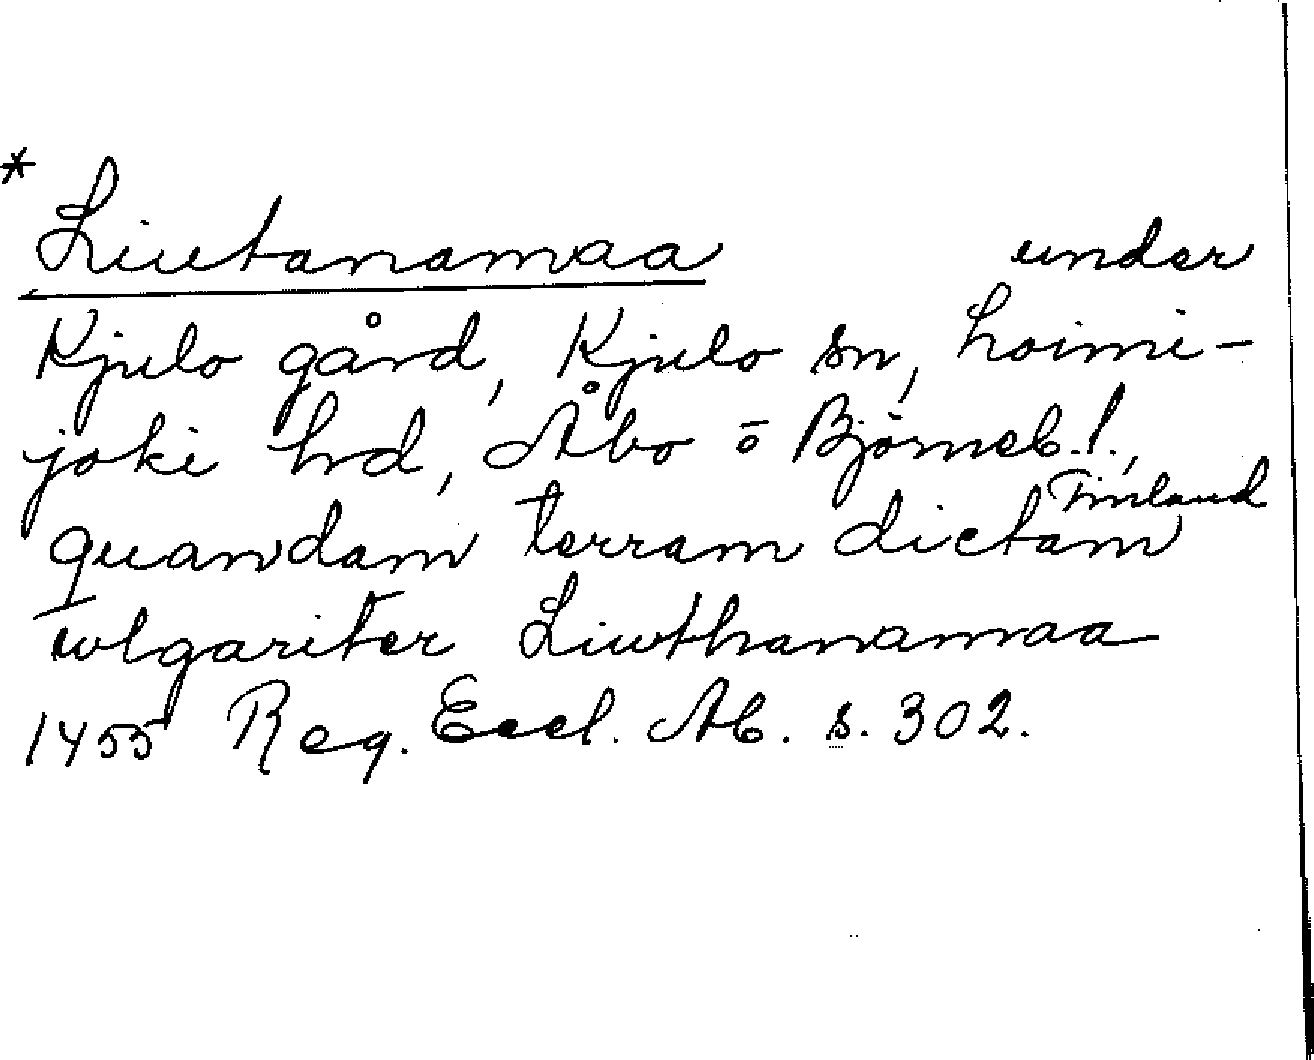 * Liutanamaa under
Kjulo gård, Kjulo sn, Loimi-
joki hd, Åbo o Björneb. l.,
Finland
quandam terram dictam
wlgariter Liwthanamaa
1455 Reg. Eccl. Ab. s. 302.